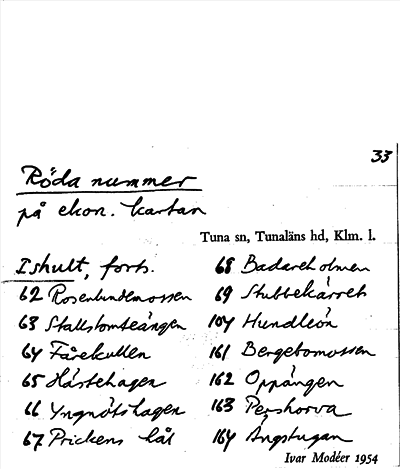 33
Röda nummer
på ekon. kartan
Tuna sn, Tunaläns hd, Klm. l.
Ishult, forts.
62 Rosenlundsmossen
63 Stallstomteängen
64 Fårekullen
65 Hästehagen
66 Yngnötshagen
67 Prickens kål
68 Badareholmen
69 Stubbekärret
104 Hundleön
161 Bergebomossen
162 Oppängen
163 Pershorva
164 Ängstugan
Ivar Modéer 1954